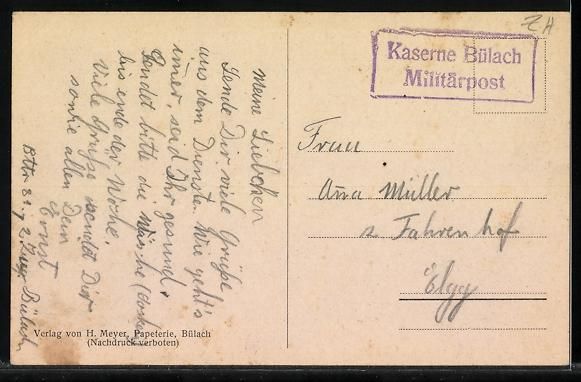 Meine Liebchen
Sende Dir viele Grüße
aus dem Dienste. Wie geht's
immer, seid Ihr gesund.
Sendet bitte die Wäsche
bis ende der Woche.
Viele Grüße sendet Dir
sowie allen Dein
Ernst
Bttr. Bülach
Verlag von H. Meyer, Papeterie, Bülach
(Nachdruck verboten)
ZH
Kaserne Bülach
Militärpost
Frau
Müller
Fahrenhof
Elgg